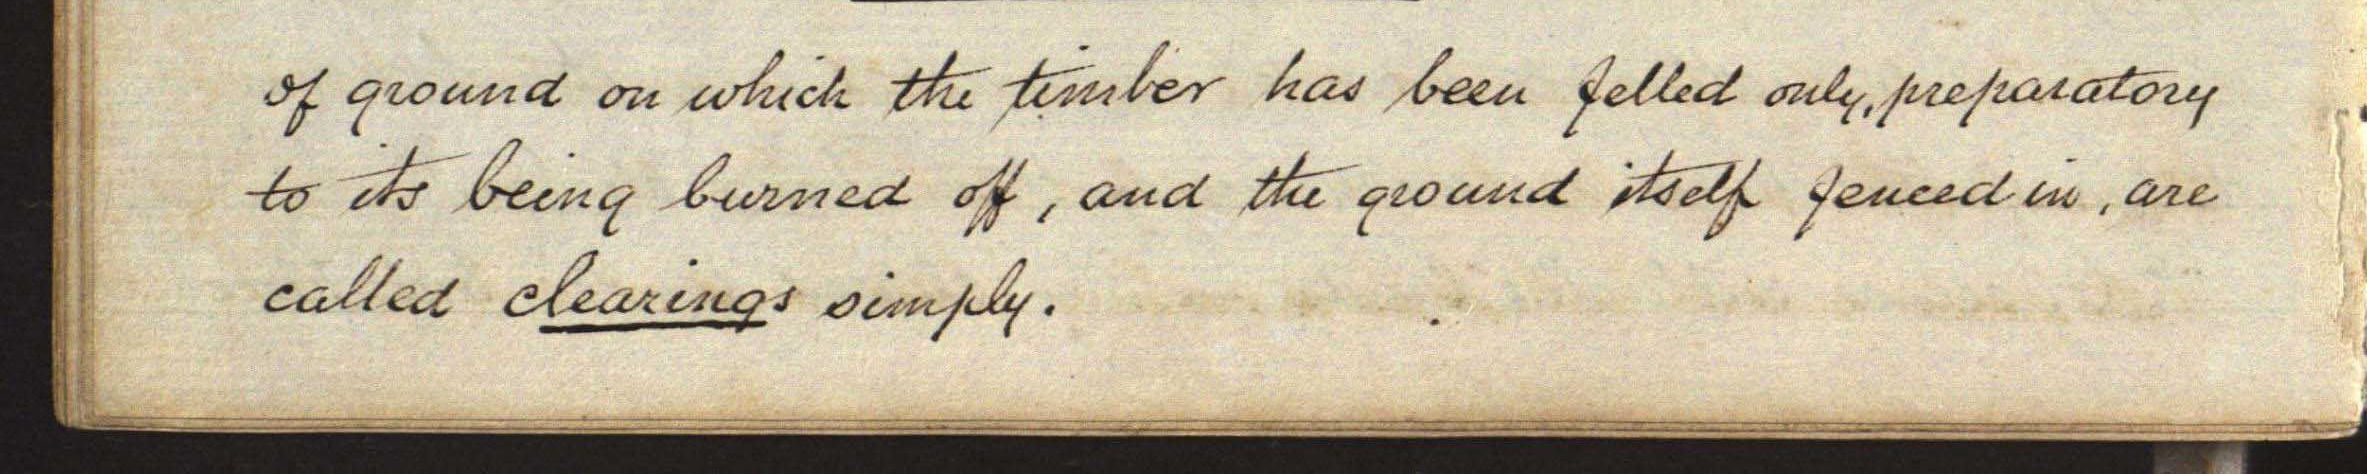 of ground on which the timber has been felled only, preparatory
to its being burned off, and the ground itself fenced in, are
called clearings simply.